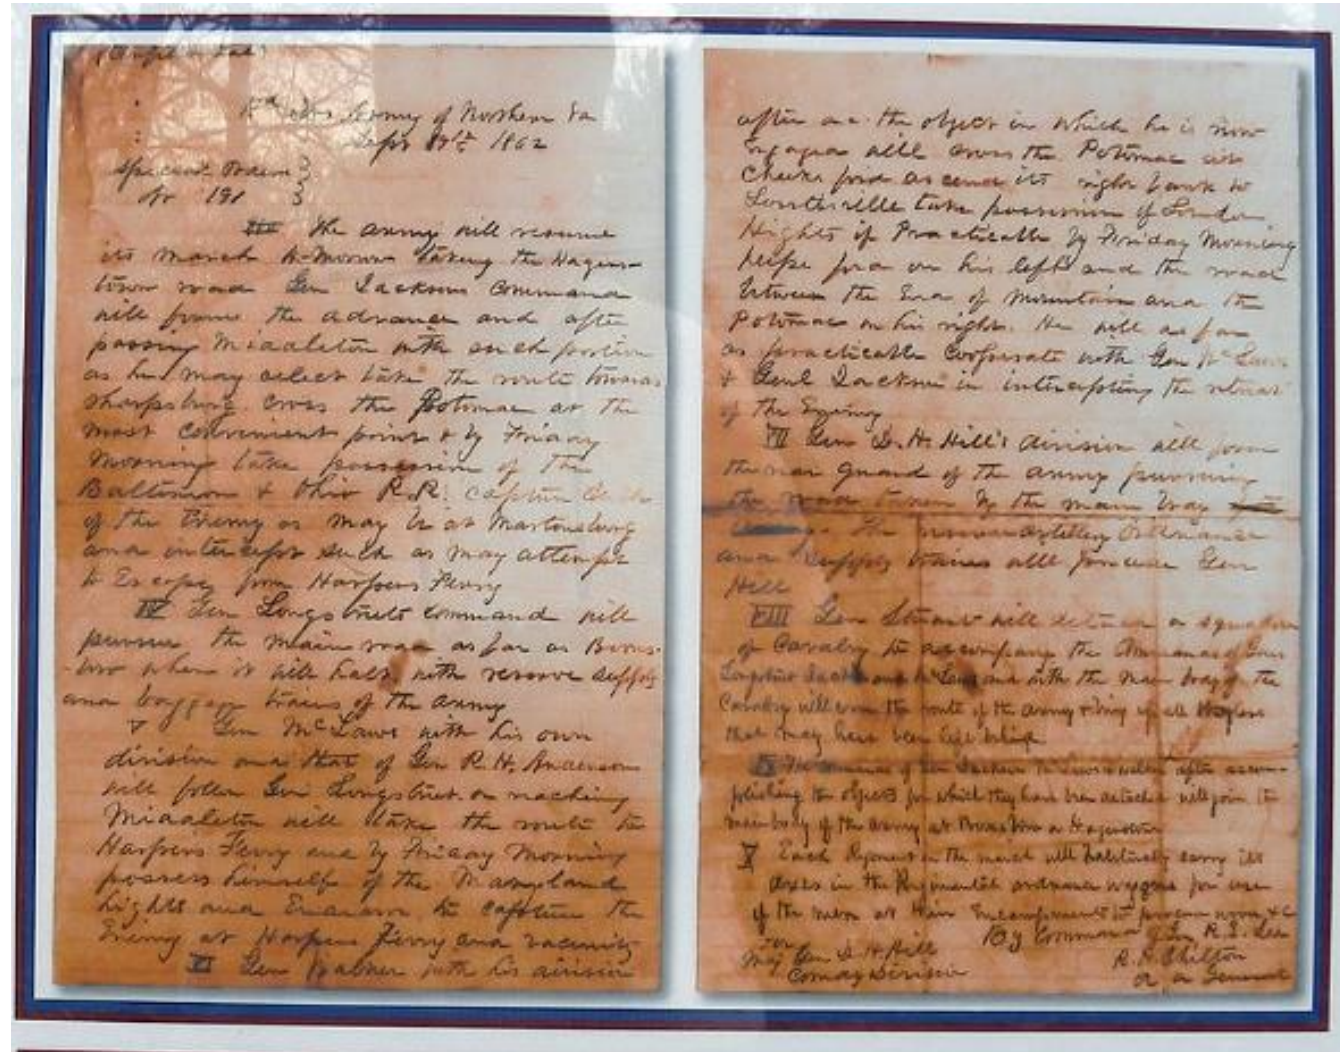 (Confidential)
Hd Qrs Army of Northern Va
Sept 9th 1862
Special Orders
No 191
III The army will resume
its march to-morrow taking the Hagers-
town road Gen Jacksons Command
will form the advance and after
passing Middleton with such portion
as he may select take the route towards
Sharpsburg cross the Potomac at the
most convenient point & by Friday
Morning take possession of the
Baltimore & Ohio R.R. capture such
of the Enemy as may be at Martinsburg
and intercept such as may attempt
to Escape from Harpers Ferry
IV Gen Longstreets command will
pursue the main road as far as Boons-
boro where it will halt with reserve supply
and baggage trains of the army
V Gen McLaws with his own
division and that of Gen R.H. Anderson
will follow Gen Longstreet on reaching
Middleton will take the route to
Harpers Ferry and by Friday Morning
possess himself of the Maryland
hights and Endeavor to capture the
Enemy at Harpers Ferry and vacinity
VI Gen Walker with his division
after acc the object in which he is now
engaged will cross the Potomac at
Cheeks ford ascend its right bank to
Lovettsville take possession of Loudon
Hights if Practicable by Friday Morning
ford on his left and the road
between the End of Mountain and the
Potomac on his right. He will as far
as practicable Cooperate with Gen McLaws
& Genl Jackson in intercepting the retreat
of the Enemy
VII Gen D.H. Hill's division will form
the rear guard of the army pursuing
the road taken by the main body
The reserve artillery Ordnance
and supply trains will precede Gen
Hill
VIII Gen Stuart will detach a squadron
of Cavalry to accompany the Commands of Gens
Longstreet Jackson and McLaws and with the main body of the
Cavalry will cover the route of the army & bring up all stragglers
that may have been left behind
IX The commands of Gen Jackson McLaws & Walker after accom-
plishing the objects for which they have been detached will join the
main body of the army at Boonsboro or Hagerstown
X Each Regiment on the march will habitually carry its
axes in the Regimental ordnance waggons for use
of the men at their Encampments to procure wood &c
By Command of Gen R.E. Lee
For
Maj Gen D.H. Hill
R.H. Chilton
Comdg Division
A A General